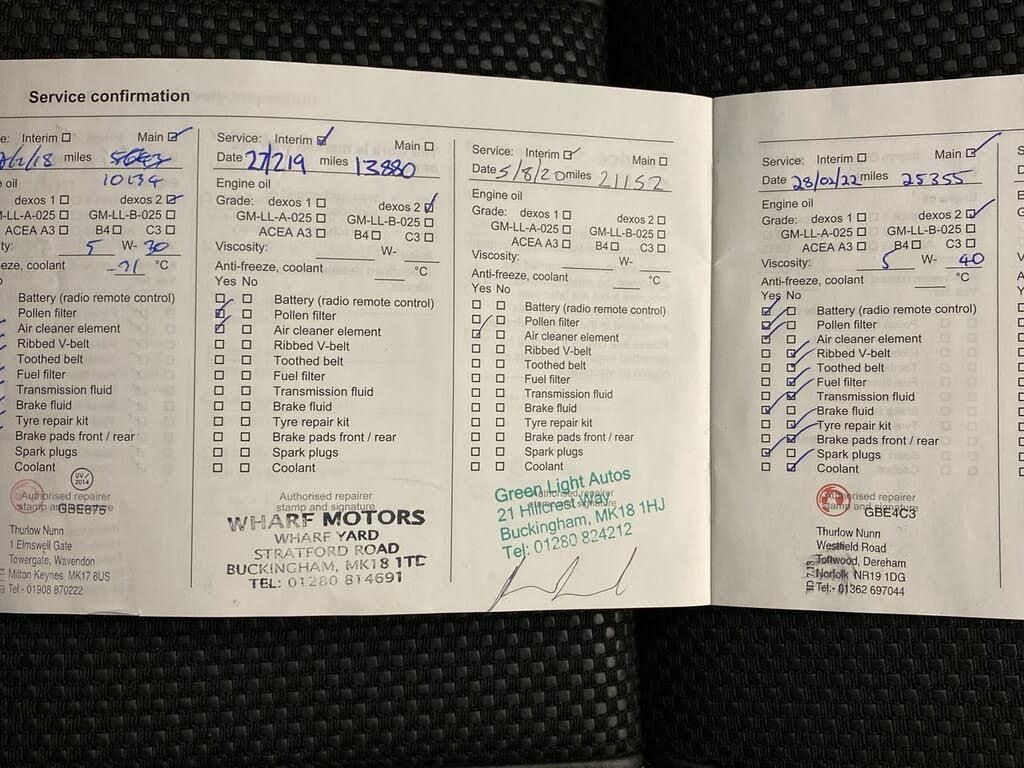 Service confirmation
e: Interim Main
/18 miles
10134
e oil
dexos 1 dexos 2
M-LL-A-025 GM-LL-B-025
ACEA A3 B4 C3
ty: 5 W- 30
eeze, coolant -31 °C
o
Battery (radio remote control)
Pollen filter
Air cleaner element
Ribbed V-belt
Toothed belt
Fuel filter
Transmission fluid
Brake fluid
Tyre repair kit
Brake pads front / rear
Spark plugs
Coolant
UV
2014
Authorised repairer
stamp and signature
GBE875
Thurlow Nunn
1 Elmswell Gate
Towergate, Wavendon
Milton Keynes MK17 8US
Tel:- 01908 870222
Service: Interim Main
Date 27/2/19 miles 13880
Engine oil
Grade: dexos 1 dexos 2
GM-LL-A-025 GM-LL-B-025
ACEA A3 B4 C3
Viscosity: W-
Anti-freeze, coolant °C
Yes No
Battery (radio remote control)
Pollen filter
Air cleaner element
Ribbed V-belt
Toothed belt
Fuel filter
Transmission fluid
Brake fluid
Tyre repair kit
Brake pads front / rear
Spark plugs
Coolant
Authorised repairer
stamp and signature
WHARF MOTORS
WHARF YARD
STRATFORD ROAD
BUCKINGHAM, MK18 1TD
TEL: 01280 814691
Service: Interim Main
Date 5/8/20 miles 21152
Engine oil
Grade: dexos 1 dexos 2
GM-LL-A-025 GM-LL-B-025
ACEA A3 B4 C3
Viscosity: W-
Anti-freeze, coolant °C
Yes No
Battery (radio remote control)
Pollen filter
Air cleaner element
Ribbed V-belt
Toothed belt
Fuel filter
Transmission fluid
Brake fluid
Tyre repair kit
Brake pads front / rear
Spark plugs
Coolant
Authorised repairer
stamp and signature
Green Light Autos
21 Hillcrest Way
Buckingham, MK18 1HJ
Tel: 01280 824212
Service: Interim Main
Date 28/02/22 miles 25355
Engine oil
Grade: dexos 1 dexos 2
GM-LL-A-025 GM-LL-B-025
ACEA A3 B4 C3
Viscosity: 5 W- 40
Anti-freeze, coolant °C
Yes No
Battery (radio remote control)
Pollen filter
Air cleaner element
Ribbed V-belt
Toothed belt
Fuel filter
Transmission fluid
Brake fluid
Tyre repair kit
Brake pads front / rear
Spark plugs
Coolant
Authorised repairer
stamp and signature
GBE4C3
Thurlow Nunn
Westfield Road
Toftwood, Dereham
Norfolk NR19 1DG
Tel:- 01362 697044